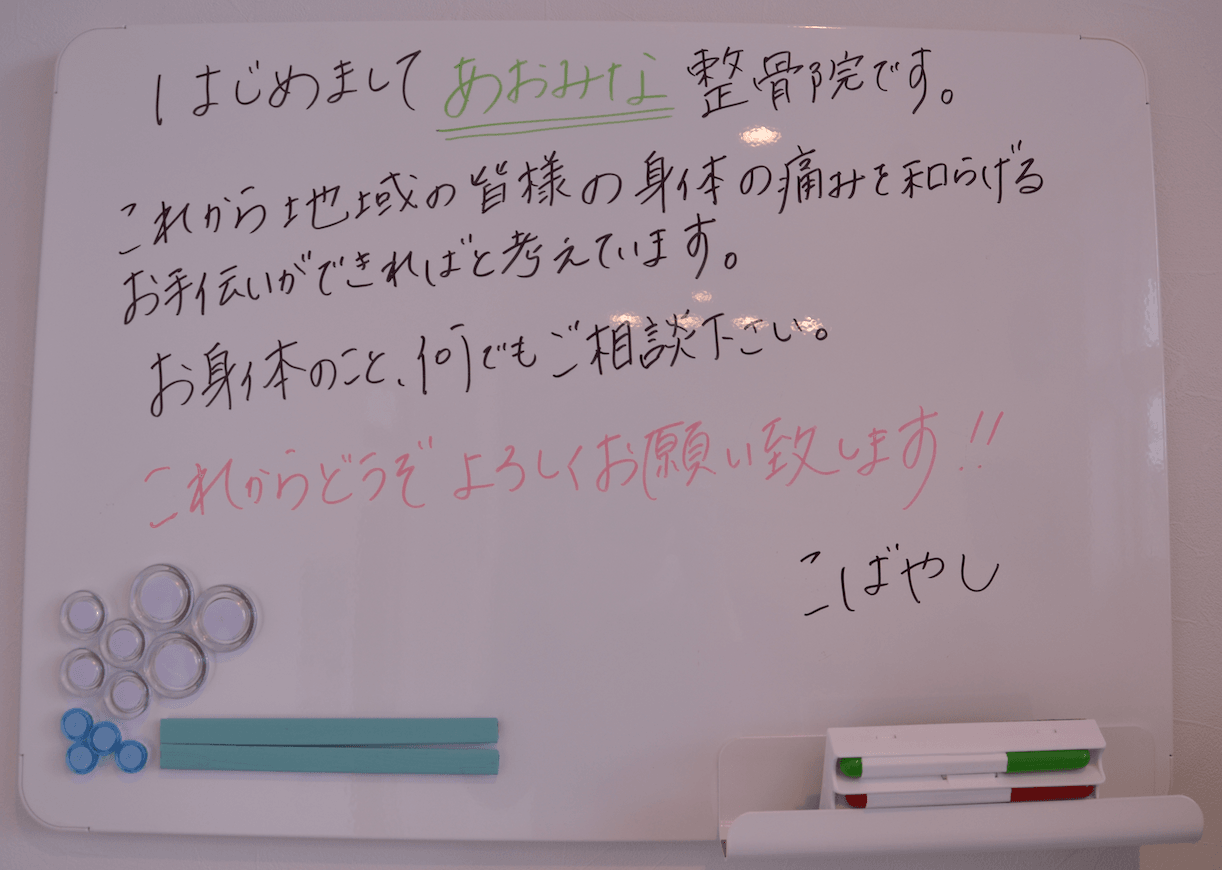 はじめまして あおみな 整骨院です。
これから地域の皆様の身体の痛みを和らげる
お手伝いができればと考えています。
お身体のこと、何でもご相談下さい。
これからどうぞよろしくお願い致します!!
こばやし